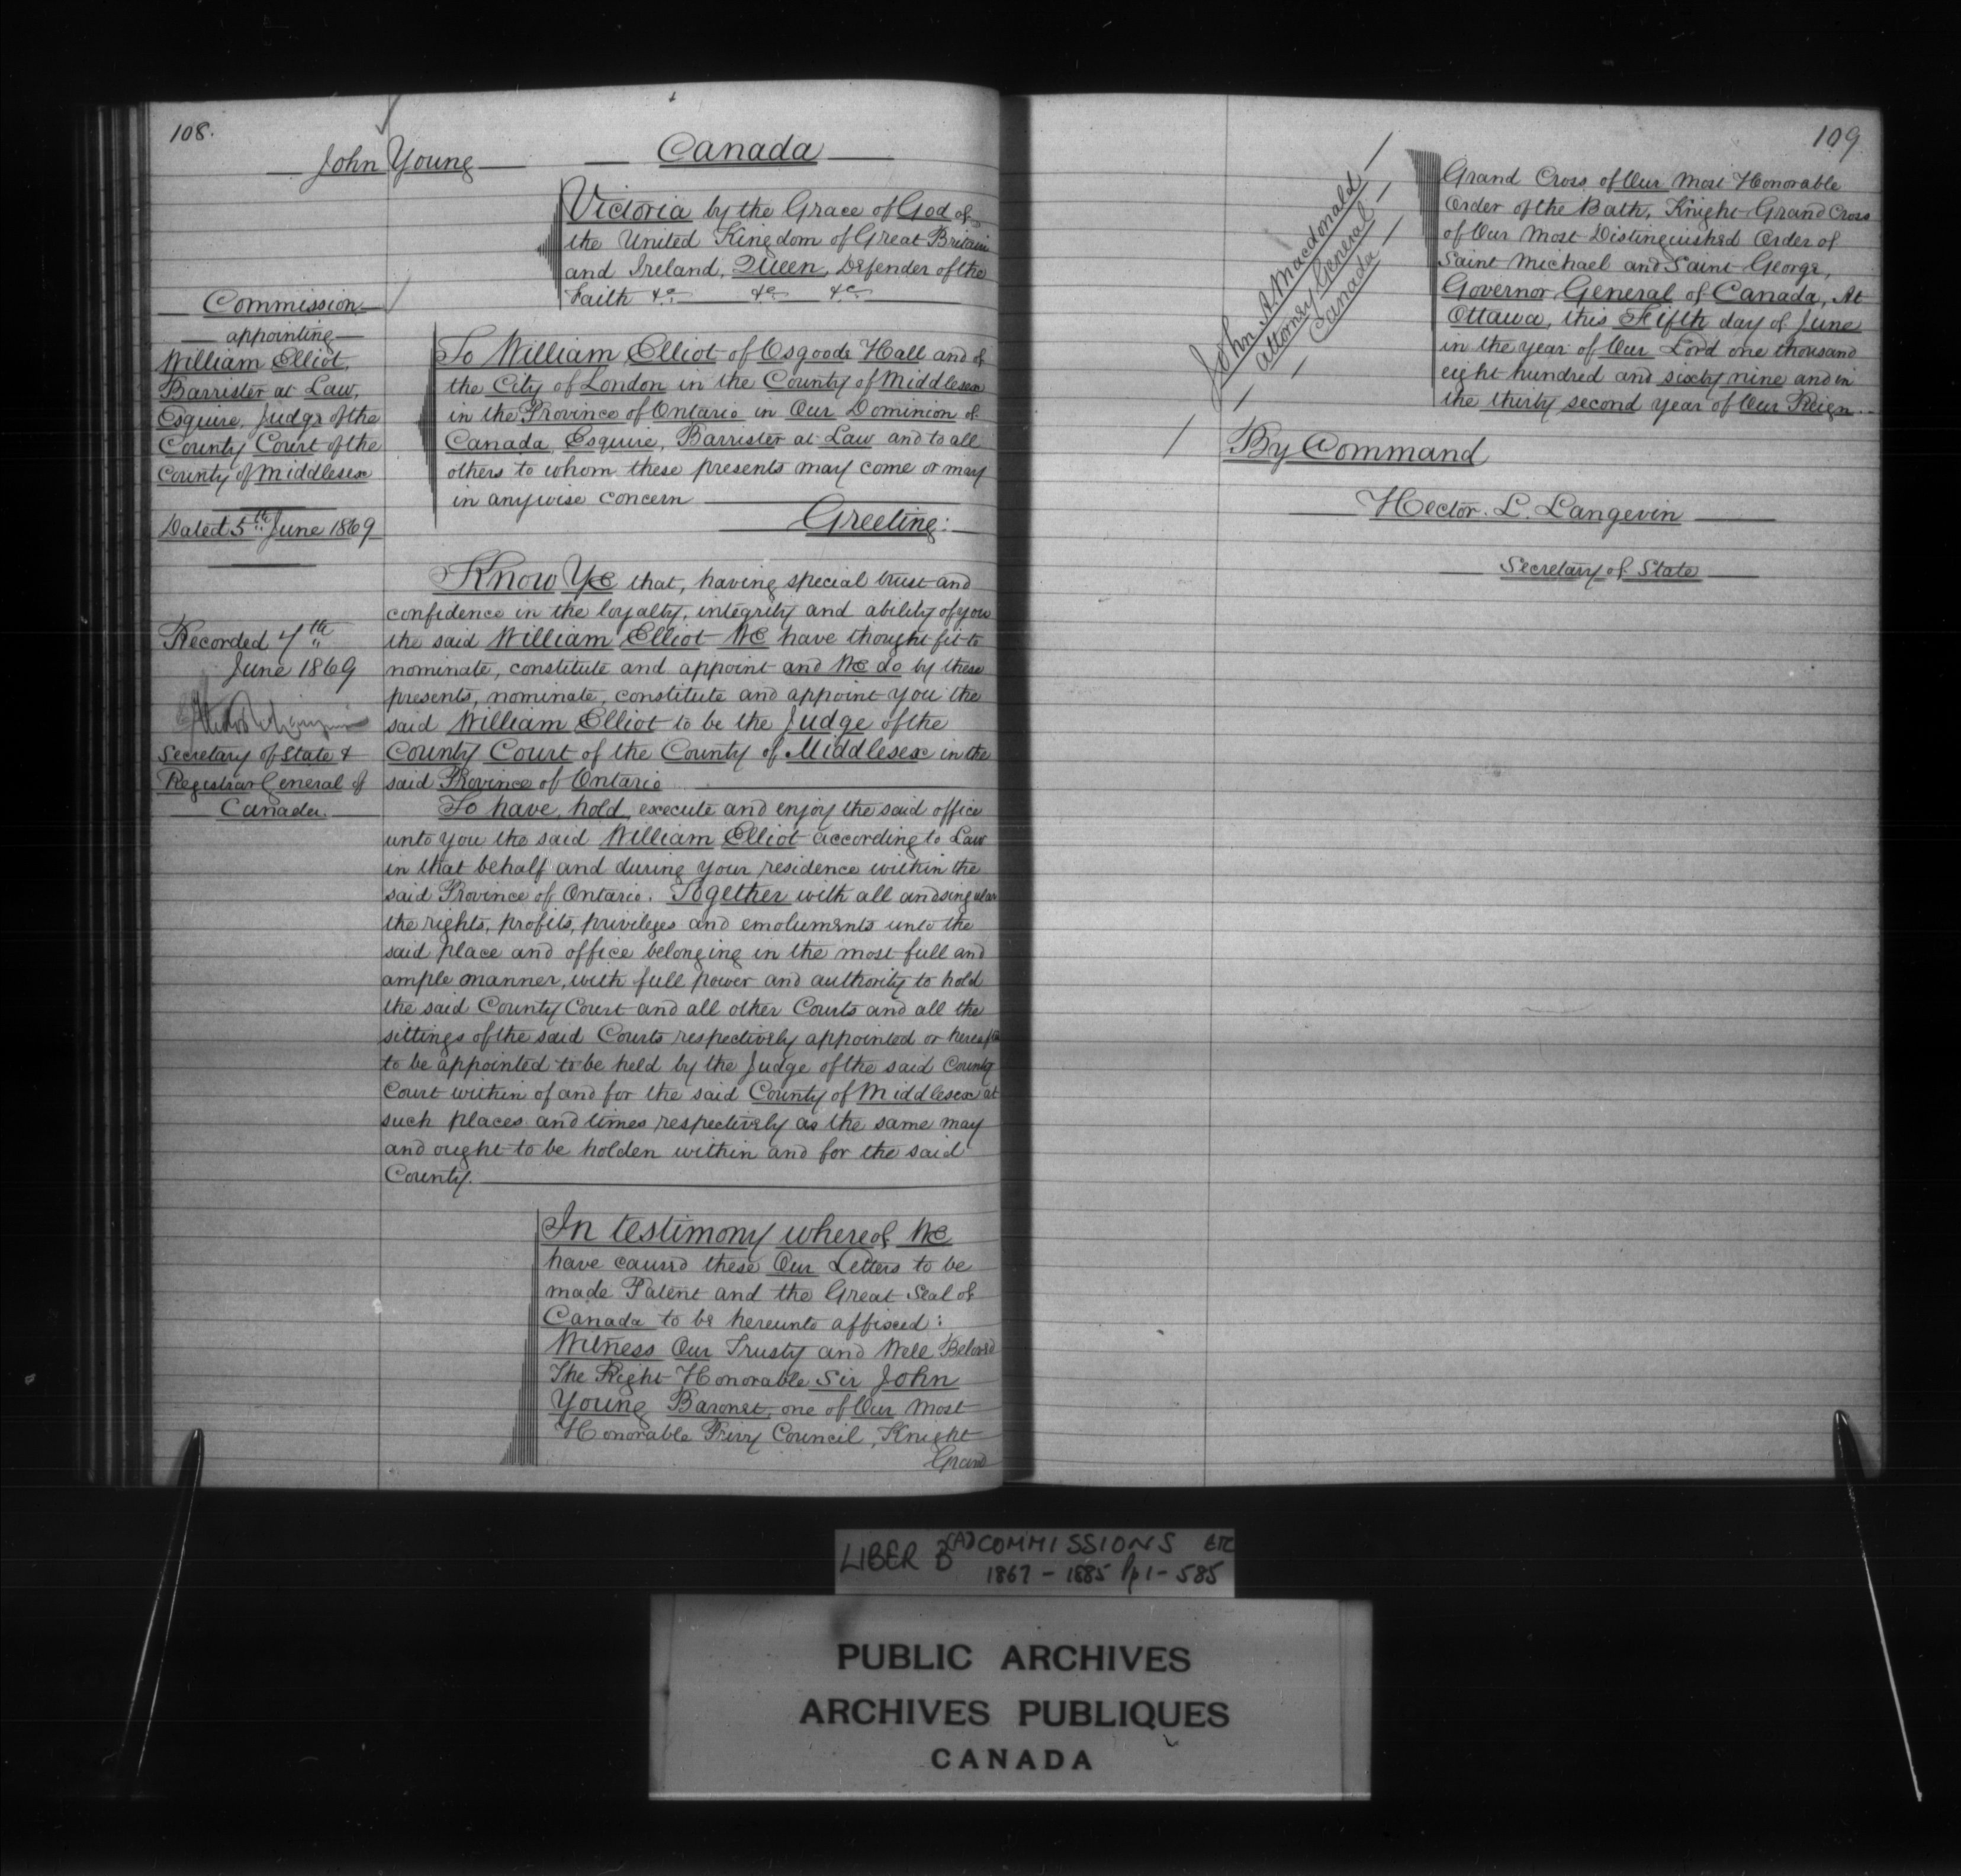 108.
John Young
Canada
Victoria by the Grace of God of
the United Kingdom of Great Britain
and Ireland, Queen, Defender of the
Faith &c &c &c
Commission
appointing
William Elliot,
Barrister at Law,
Esquire, Judge of the
County Court of the
County of Middlesex
Dated 5th June 1869
Recorded 7th
June 1869
Secretary of State &
Registrar General of
Canada.
To William Elliot of Osgoode Hall and of
the City of London in the County of Middlesex
in the Province of Ontario in Our Dominion of
Canada, Esquire, Barrister at Law and to all
others to whom these presents may come or may
in anywise concern
Greeting:
Know Ye that, having special trust and
confidence in the loyalty, integrity and ability of you
the said William Elliot We have thought fit to
nominate, constitute and appoint and We do by these
presents, nominate, constitute and appoint You the
said William Elliot to be the Judge of the
County Court of the County of Middlesex in the
said Province of Ontario
To have, hold, execute and enjoy the said office
unto you the said William Elliot according to Law
in that behalf and during your residence within the
said Province of Ontario. Together with all and singular
the rights, profits, privileges and emoluments unto the
said place and office belonging in the most full and
ample manner, with full power and authority to hold
the said County Court and all other Courts and all the
sittings of the said Courts respectively appointed or hereafter
to be appointed to be held by the Judge of the said County
Court within of and for the said County of Middlesex at
such places and times respectively as the same may
and ought to be holden within and for the said
County.
In testimony whereof We
have caused these Our Letters to be
made Patent and the Great Seal of
Canada to be hereunto affixed:
Witness Our Trusty and Well Beloved
The Right Honorable Sir John
Young Baronet, one of Our Most
Honorable Privy Council, Knight
Grand
109
John A Macdonald
Attorney General
Canada
Grand Cross of Our Most Honorable
Order of the Bath, Knight Grand Cross
of Our Most Distinguished Order of
Saint Michael and Saint George,
Governor General of Canada, At
Ottawa, this Fifth day of June
in the year of Our Lord one thousand
eight hundred and sixty nine and in
the thirty second year of Our Reign.
By Command
Hector. L. Langevin
Secretary of State
LIBER B (A) COMMISSIONS ETC
1867 - 1885 Pp 1 - 585
PUBLIC ARCHIVES
ARCHIVES PUBLIQUES
CANADA